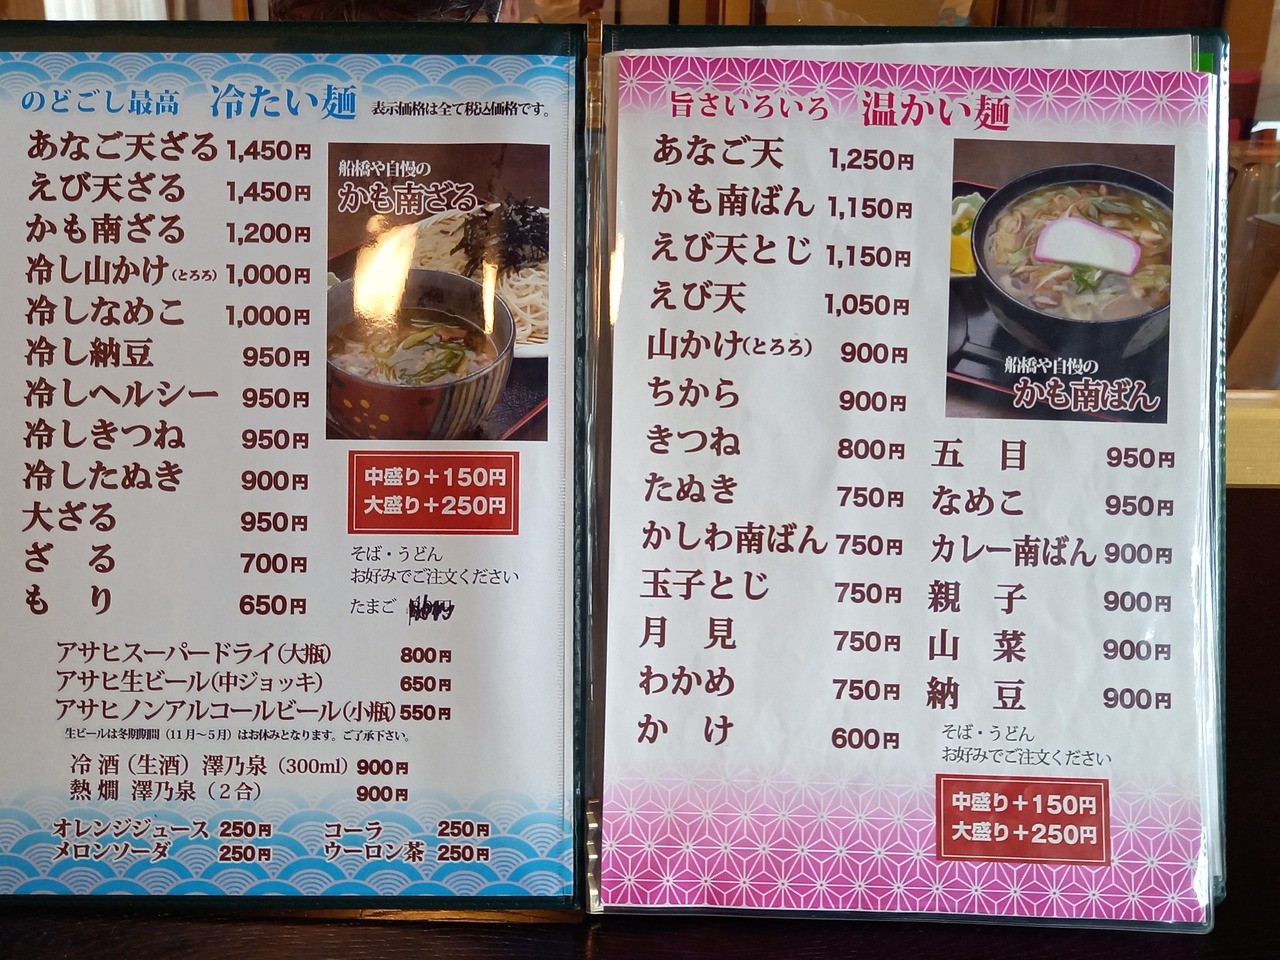 のどごし最高 冷たい麺 表示価格は全て税込価格です。
あなご天ざる 1,450円
えび天ざる 1,450円
かも南ざる 1,200円
冷し山かけ(とろろ) 1,000円
冷しなめこ 1,000円
冷し納豆 950円
冷しヘルシー 950円
冷しきつね 950円
冷したぬき 900円
大ざる 950円
ざる 700円
もり 650円
船橋や自慢の
かも南ざる
中盛り+150円
大盛り+250円
そば・うどん
お好みでご注文ください
たまご
アサヒスーパードライ(大瓶) 800円
アサヒ生ビール(中ジョッキ) 650円
アサヒノンアルコールビール(小瓶) 550円
生ビールは冬期期間(11月〜5月)はお休みとなります。ご了承下さい。
冷酒(生酒)澤乃泉(300ml) 900円
熱燗 澤乃泉(2合) 900円
オレンジジュース 250円 コーラ 250円
メロンソーダ 250円 ウーロン茶 250円
旨さいろいろ 温かい麺
あなご天 1,250円
かも南ばん 1,150円
えび天とじ 1,150円
えび天 1,050円
山かけ(とろろ) 900円
ちから 900円
きつね 800円
たぬき 750円
かしわ南ばん 750円
玉子とじ 750円
月見 750円
わかめ 750円
かけ 600円
船橋や自慢の
かも南ばん
五目 950円
なめこ 950円
カレー南ばん 900円
親子 900円
山菜 900円
納豆 900円
そば・うどん
お好みでご注文ください
中盛り+150円
大盛り+250円